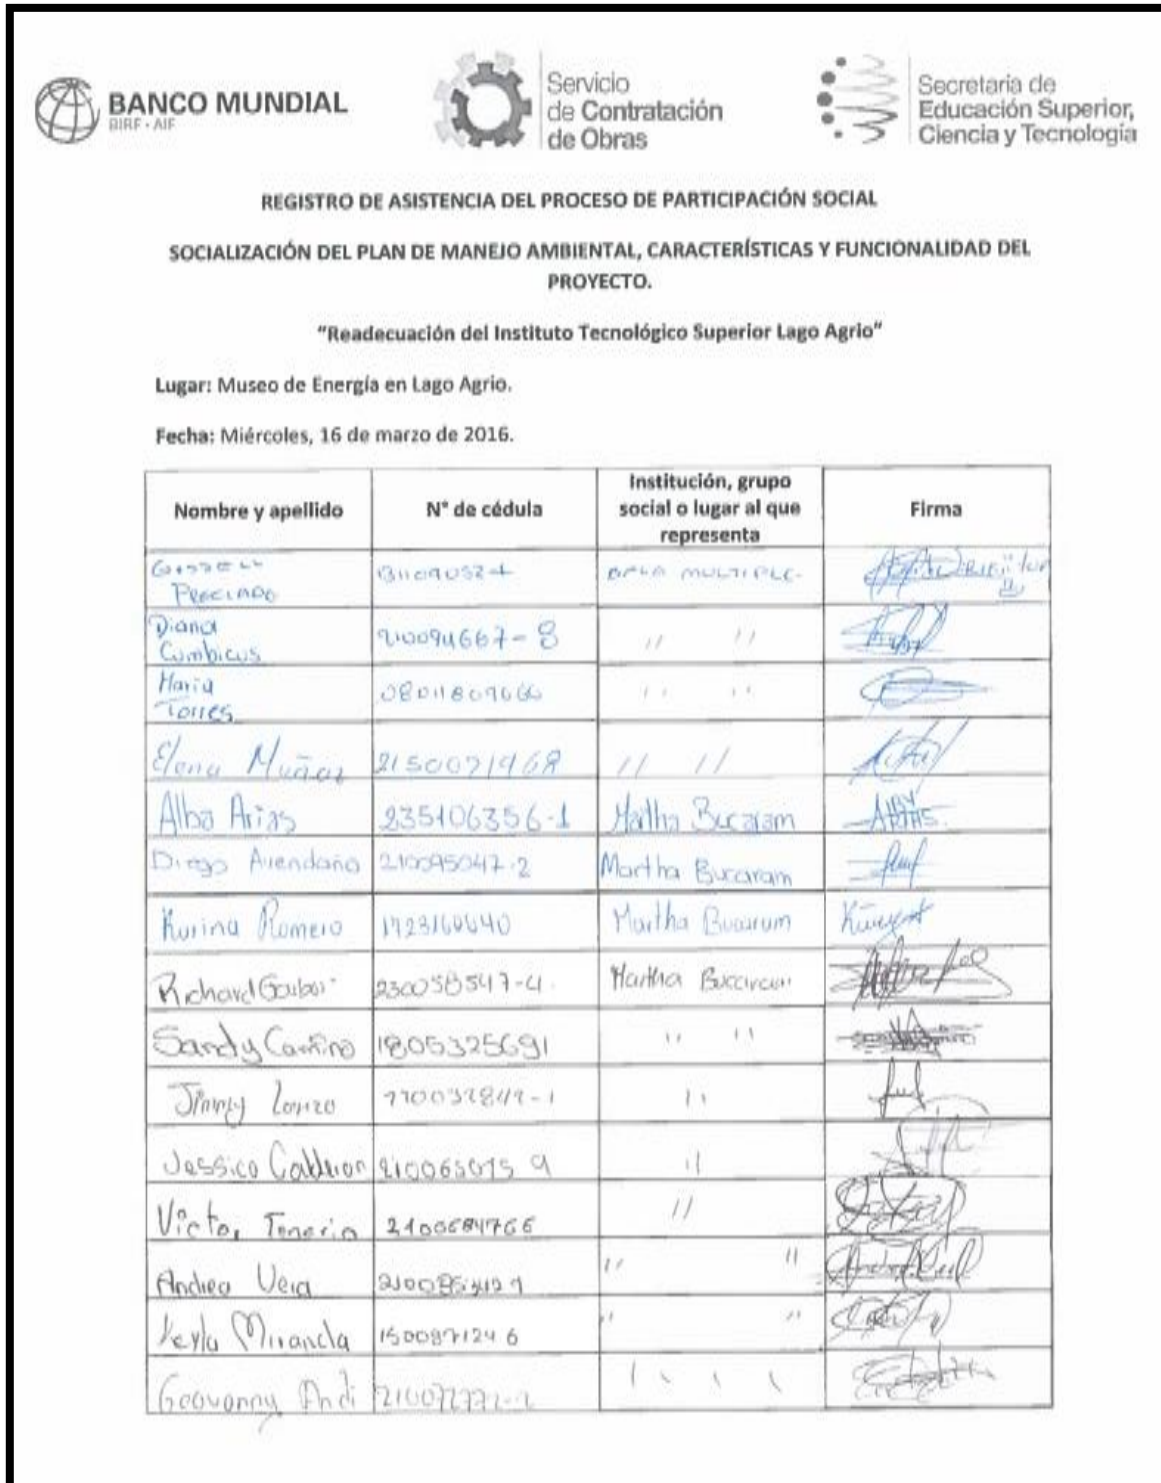 BANCO MUNDIAL
BIRF - AIF
Servicio
de Contratación
de Obras
Secretaría de
Educación Superior,
Ciencia y Tecnología
REGISTRO DE ASISTENCIA DEL PROCESO DE PARTICIPACIÓN SOCIAL
SOCIALIZACIÓN DEL PLAN DE MANEJO AMBIENTAL, CARACTERÍSTICAS Y FUNCIONALIDAD DEL
PROYECTO.
"Readecuación del Instituto Tecnológico Superior Lago Agrio"
Lugar: Museo de Energía en Lago Agrio.
Fecha: Miércoles, 16 de marzo de 2016.
Nombre y apellido N° de cédula Institución, grupo social o lugar al que representa Firma
MULTIPLE
Diana Cumbicus 210094667-8 // //
Maria Torres // //
Elena Muñoz 2150071968 // //
Alba Arias 235106356-1 Martha Bucaram
Diego Avendaño 210095047-2 Martha Bucaram
Karina Romero 1723160640 Martha Bucaram
Richard Martha Bucaram
Sandy Camino 1805325691 '' ''
Jimmy ''
Jessica Calderon 210065015 9 ''
Victor Tenorio 2100684766 //
Andrea Vera '' ''
Miranda 150097124 6 '' ''
Geovanny Andi